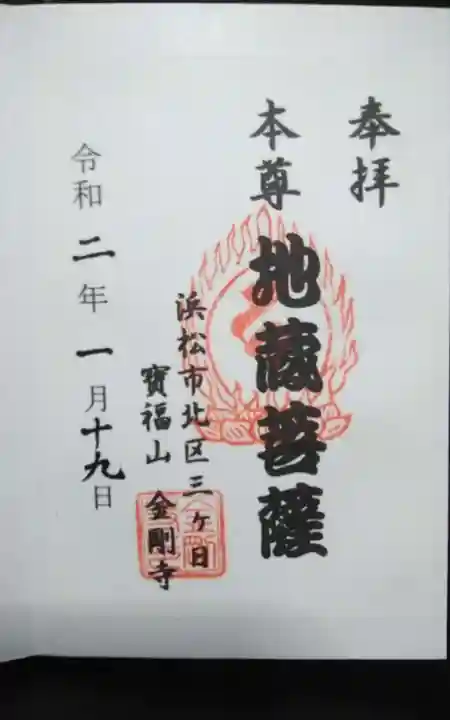 奉拝
本尊 地蔵菩薩
浜松市北区三ヶ日
寳福山 金剛寺
令和二年一月十九日